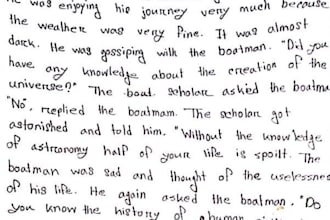 He was enjoying his journey very much because
the wealher was very Pine. It was almost
dark. He was gossiping with the boatman. "Did you
have any knowledge about the creation of the
universe?" The boat scholar asked the boatma
"No", replied the boatmam. The scholar got
astonished and told him. "Without the knowledge
of astronomy half of your life is spoilt. The
boatman was sad and thought of the uselessnes
of his life. He again asked the boatman. "Do
you know the history of human